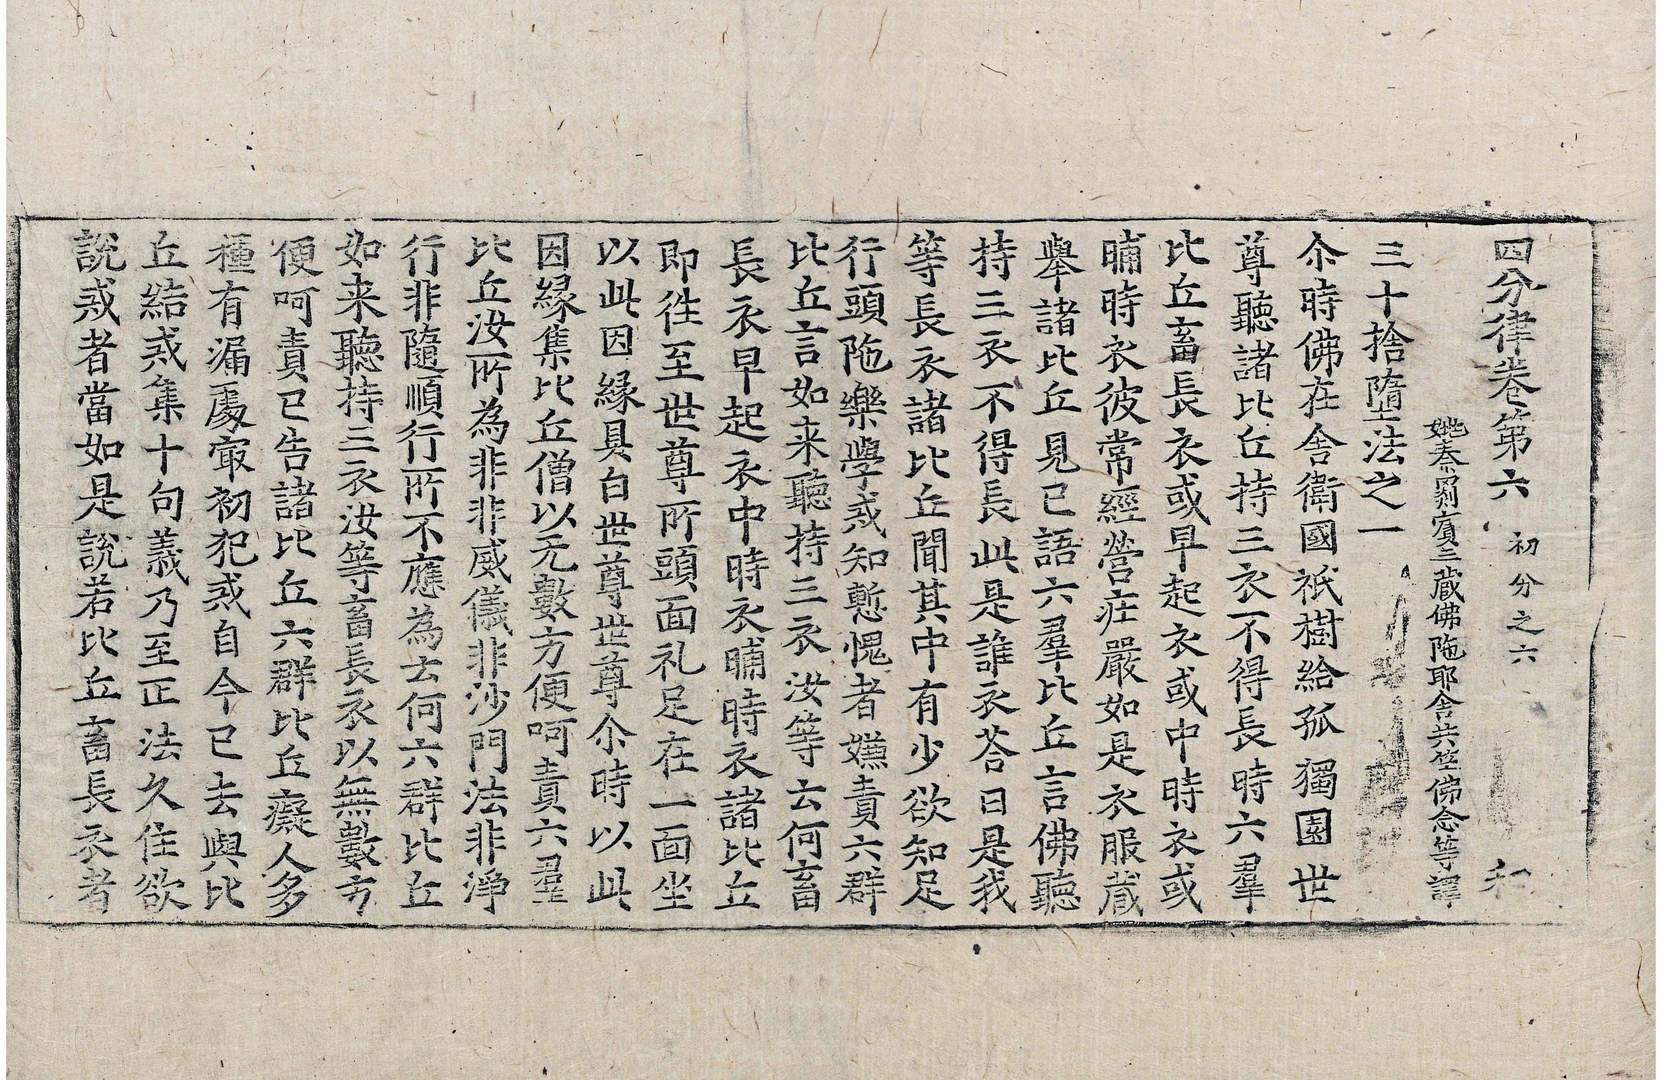 四分律卷第六 初分之六 和
姚秦罽賓三藏佛陁耶舍共竺佛念等譯
三十捨墮法之一
尒時佛在舍衛國祇樹給孤獨園世
尊聽諸比丘持三衣不得長時六羣
比丘畜長衣或早起衣或中時衣或
晡時衣彼常經營庄嚴如是衣服藏
舉諸比丘見已語六羣比丘言佛聽
持三衣不得長此是誰衣荅曰是我
等長衣諸比丘聞其中有少欲知足
行頭陁樂學戒知慙愧者嫌責六群
比丘言如来聽持三衣汝等云何畜
長衣早起衣中時衣晡時衣諸比丘
即徃至世尊所頭面礼足在一面坐
以此因緣具白世尊世尊尒時以此
因緣集比丘僧以无數方便呵責六羣
比丘汝所為非非威儀非沙門法非淨
行非隨順行所不應為云何六群比丘
如来聽持三衣汝等畜長衣以無數方
便呵責已告諸比丘六群比丘癡人多
種有漏處冣初犯戒自今已去與比
丘結戒集十句義乃至正法久住欲
說戒者當如是說若比丘畜長衣者